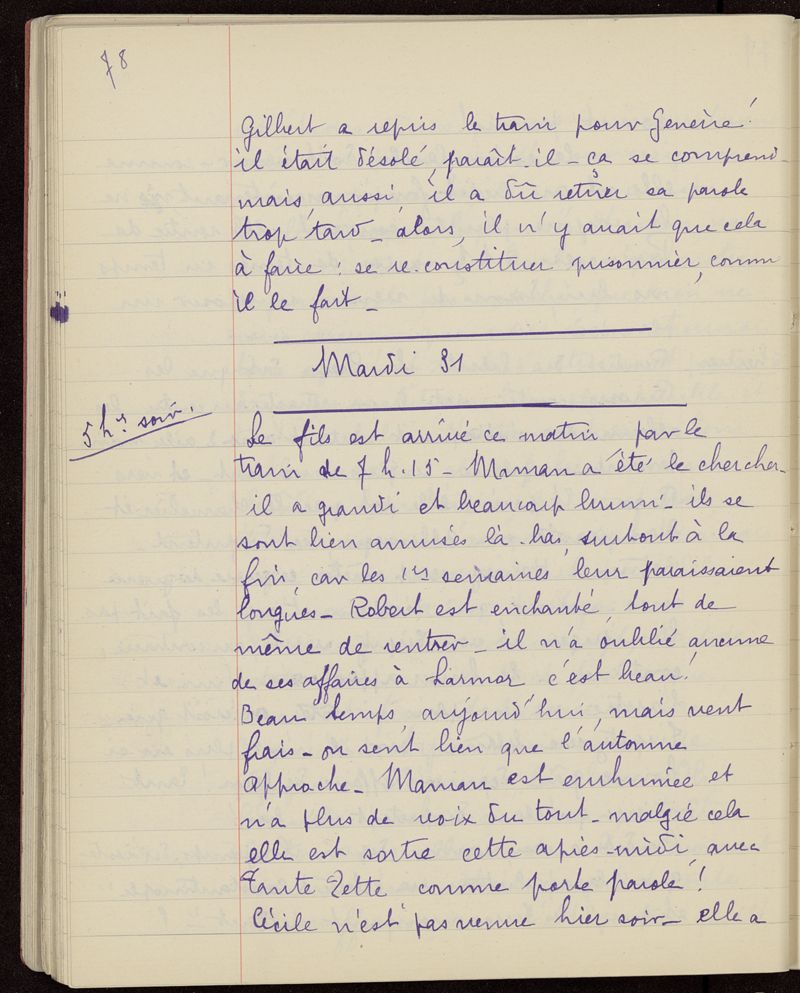 78
Gilbert a repris le train pour Genève !
il était désolé, paraît-il - ça se comprend -
mais, aussi, il a dû retirer sa parole
trop tard - alors, il n'y avait que cela
à faire : se re-constituer prisonnier, comme
il le fait -
Mardi 31
5 hrs soir.
Le fils est arrivé ce matin par le
train de 7 h. 15 - Maman a été le chercher -
il a grandi et beaucoup bruni - ils se
sont bien amusés là-bas, surtout à la
fin, car les 1res semaines leur paraissaient
longues - Robert est enchanté, tout de
même de rentrer - il n'a oublié aucune
de ses affaires à Larmor c'est beau !
Beau temps, aujourd'hui, mais vent
frais - on sent bien que l'automne
approche - Maman est enrhumée et
n'a plus de voix du tout - malgré cela
elle est sortie cette après-midi, avec
Tante Zette comme porte parole !
Cécile n'est pas venue hier soir - elle a